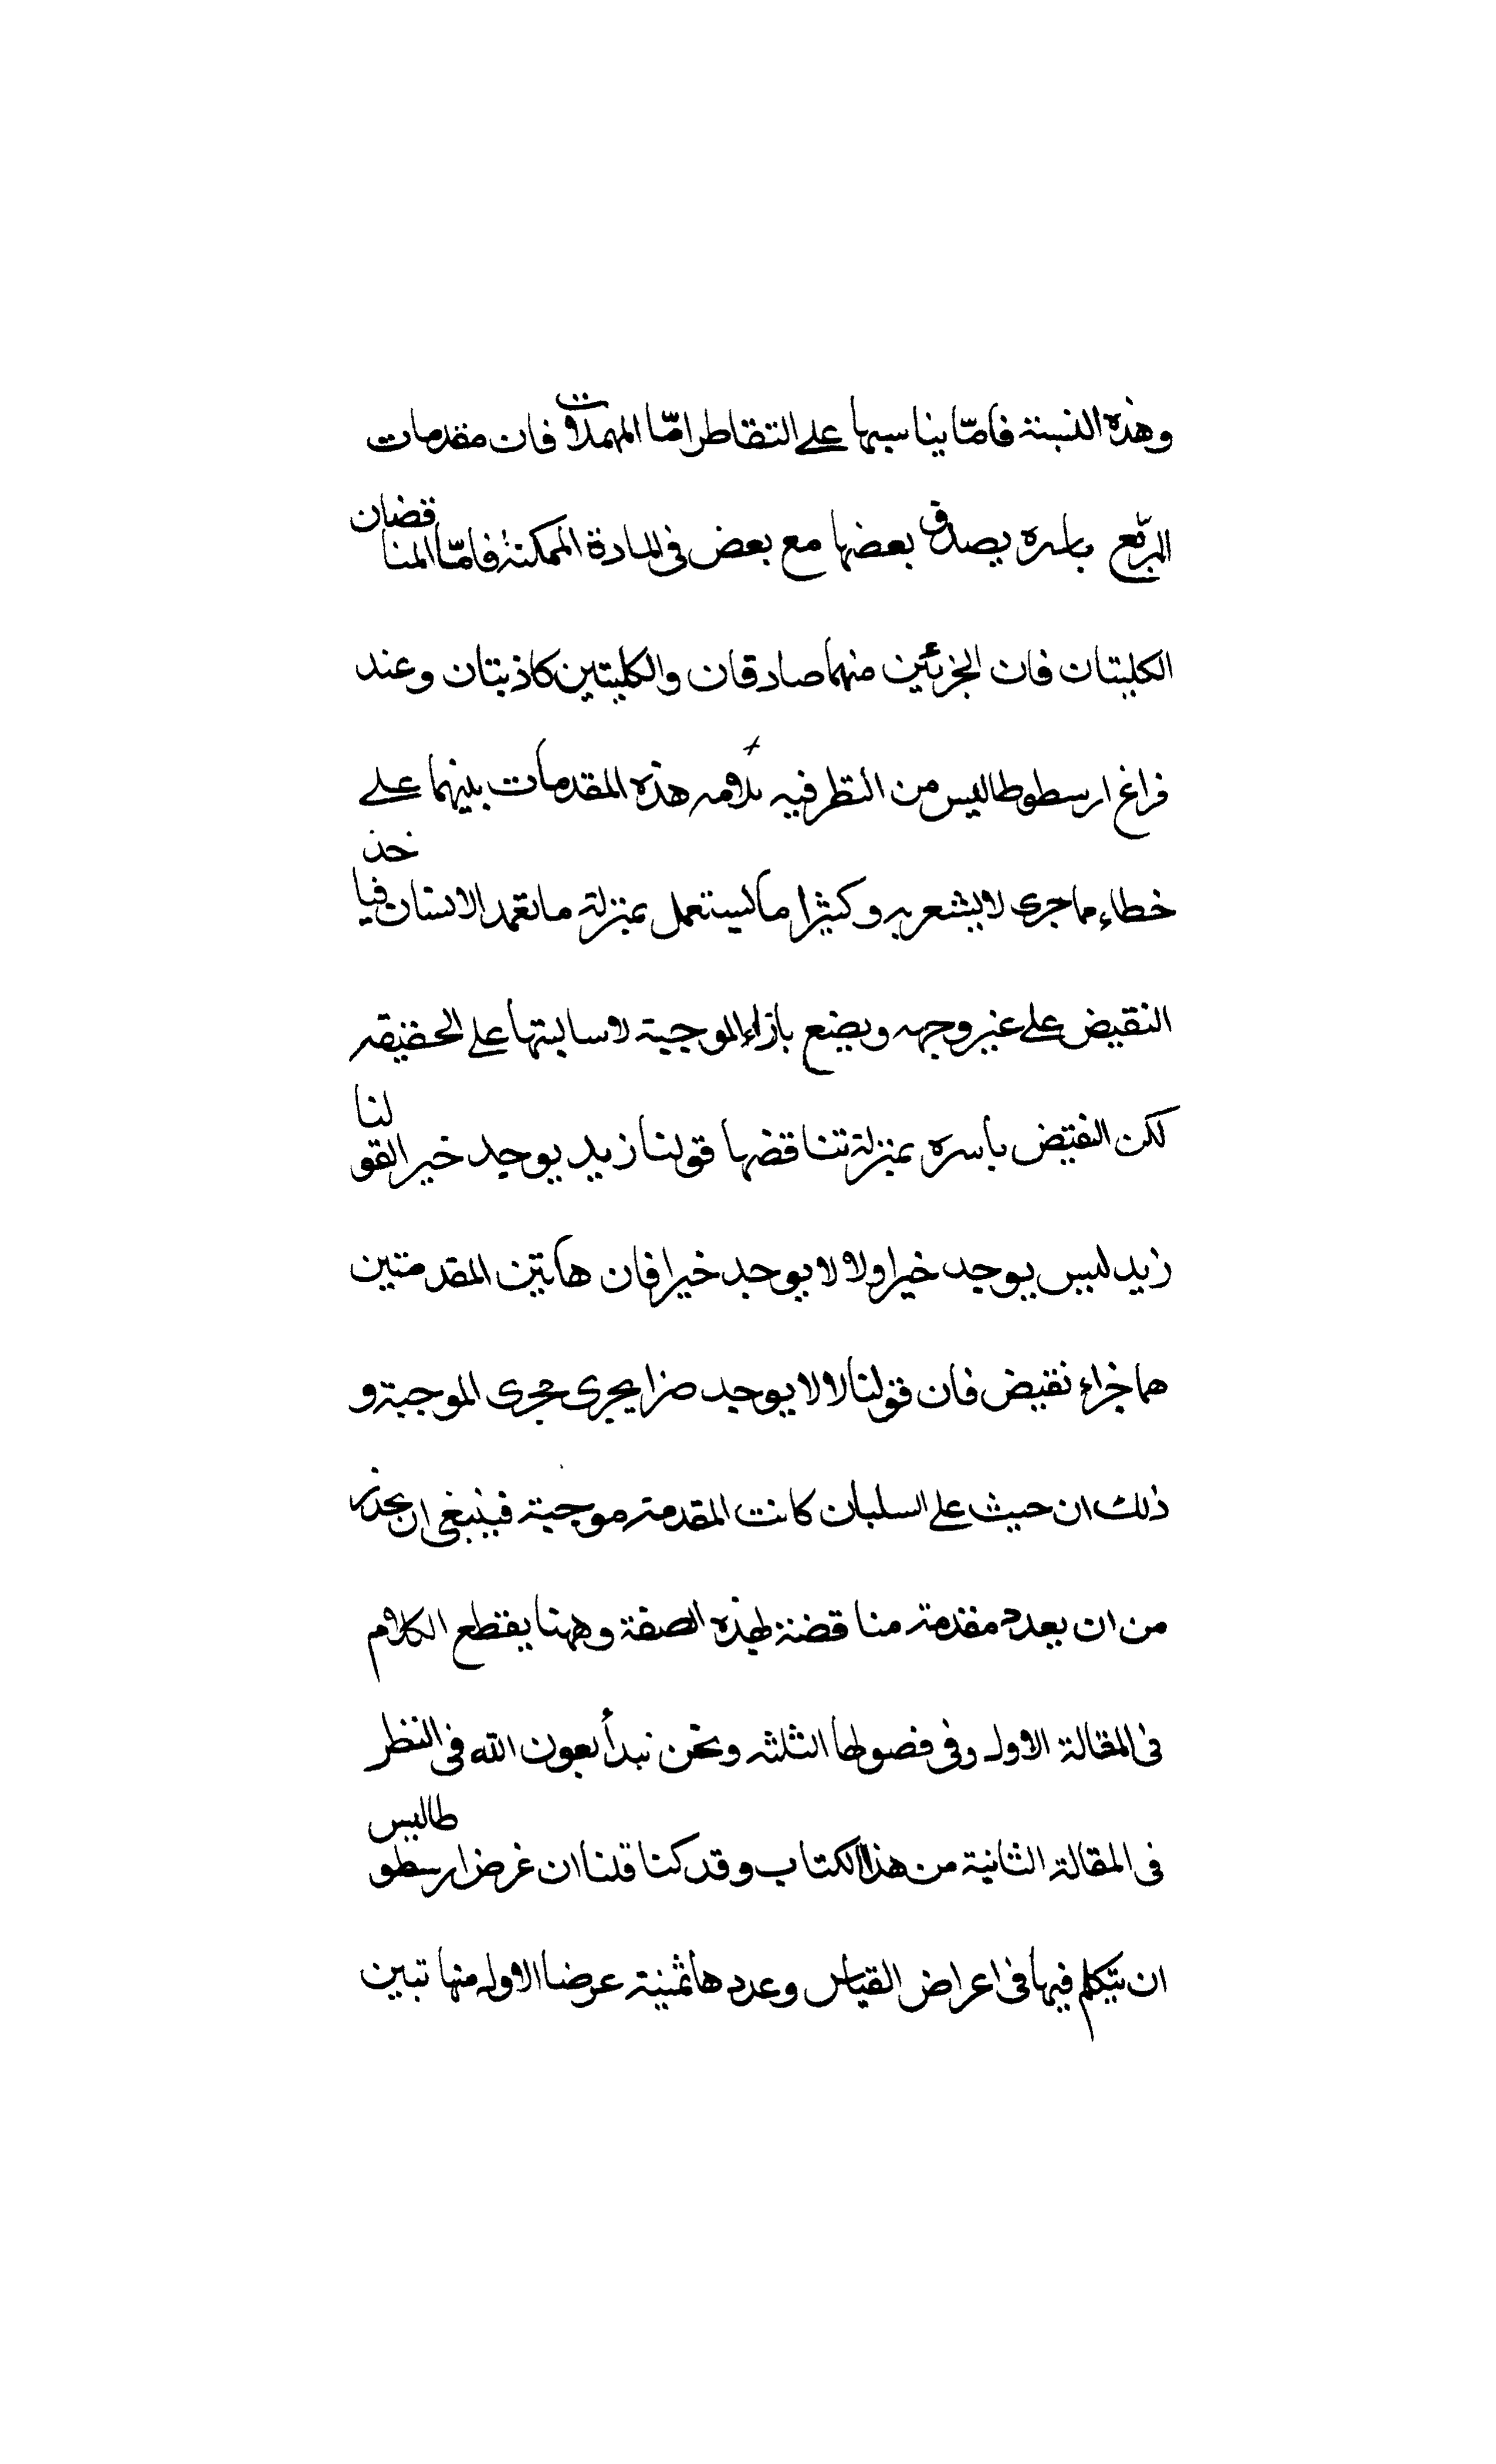 وهذه النسبة فامّا يناسبها على التقاطر امّا المهملات فان مقدمات
المربّع باسره يصدق بعضها مع بعض فى المادة الممكنة فامّا المناقضان
الكليتان فان الجزئين منهما صادقان والكليتين كاذبتان وعند
فراغ ارسطوطاليس من النظر فيه هذه المقدمات بينهما على
خطاء ما جرى لا يشعر به وكثيرا ما يستعمل بمنزلة ما تعمد الانسان فياخذ
النقيض على غير وجهه ويضع بازاء الموجبة لا سالبتها على الحقيقة
لكن النقيض باسره بمنزلة تناقضها قولنا زيد يوجد خيرا لقولنا
زيد ليس يوجد خيرا ولا لا يوجد خيرا فان هاتين المقدمتين
هما جزاء نقيض فان قولنا لا لا يوجد يجرى مجرى الموجبة و
ذلك ان حيث على السلبان كانت المقدمة موجبة فينبغى ان يحذر
من ان يعدد مقدمة مناقضة لهذه الصفة وههنا يقطع الكلام
فى المقالة الاولى وفى فصولها الثلثه ونحن نبدأ بعون الله فى النظر
فى المقالة الثانية من هذا الكتاب وقد كنا قلنا ان غرض ارسطوطاليس
ان يتكلم فيها فى اعراض القياس وعددها ثمنية عرضا الاوله منها تبين